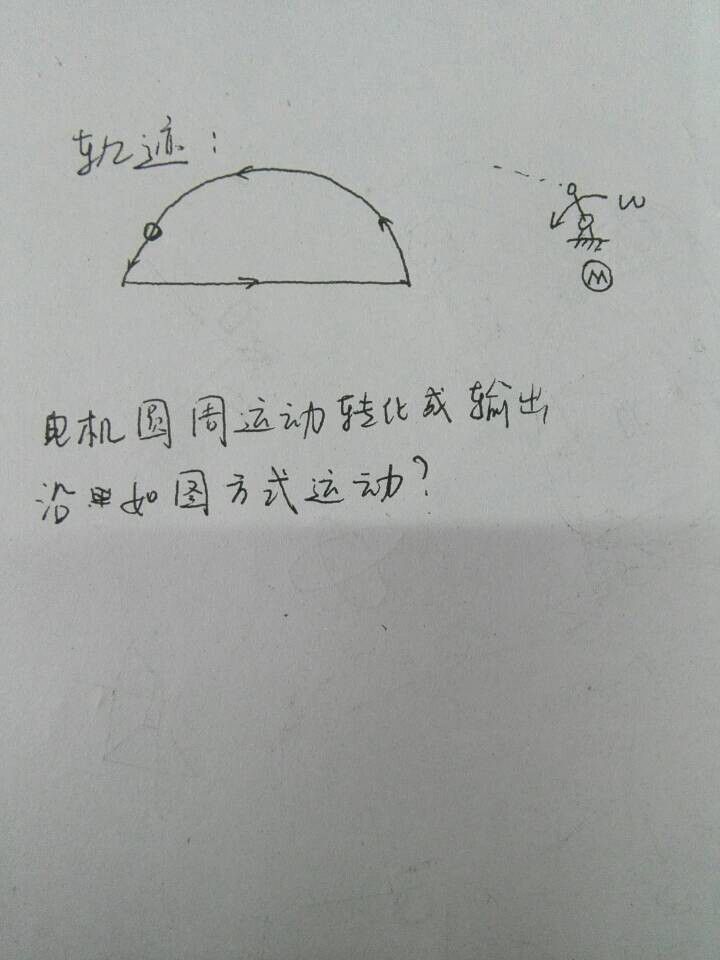 轨迹:
ω
M
电机圆周运动转化成输出
沿如图方式运动?